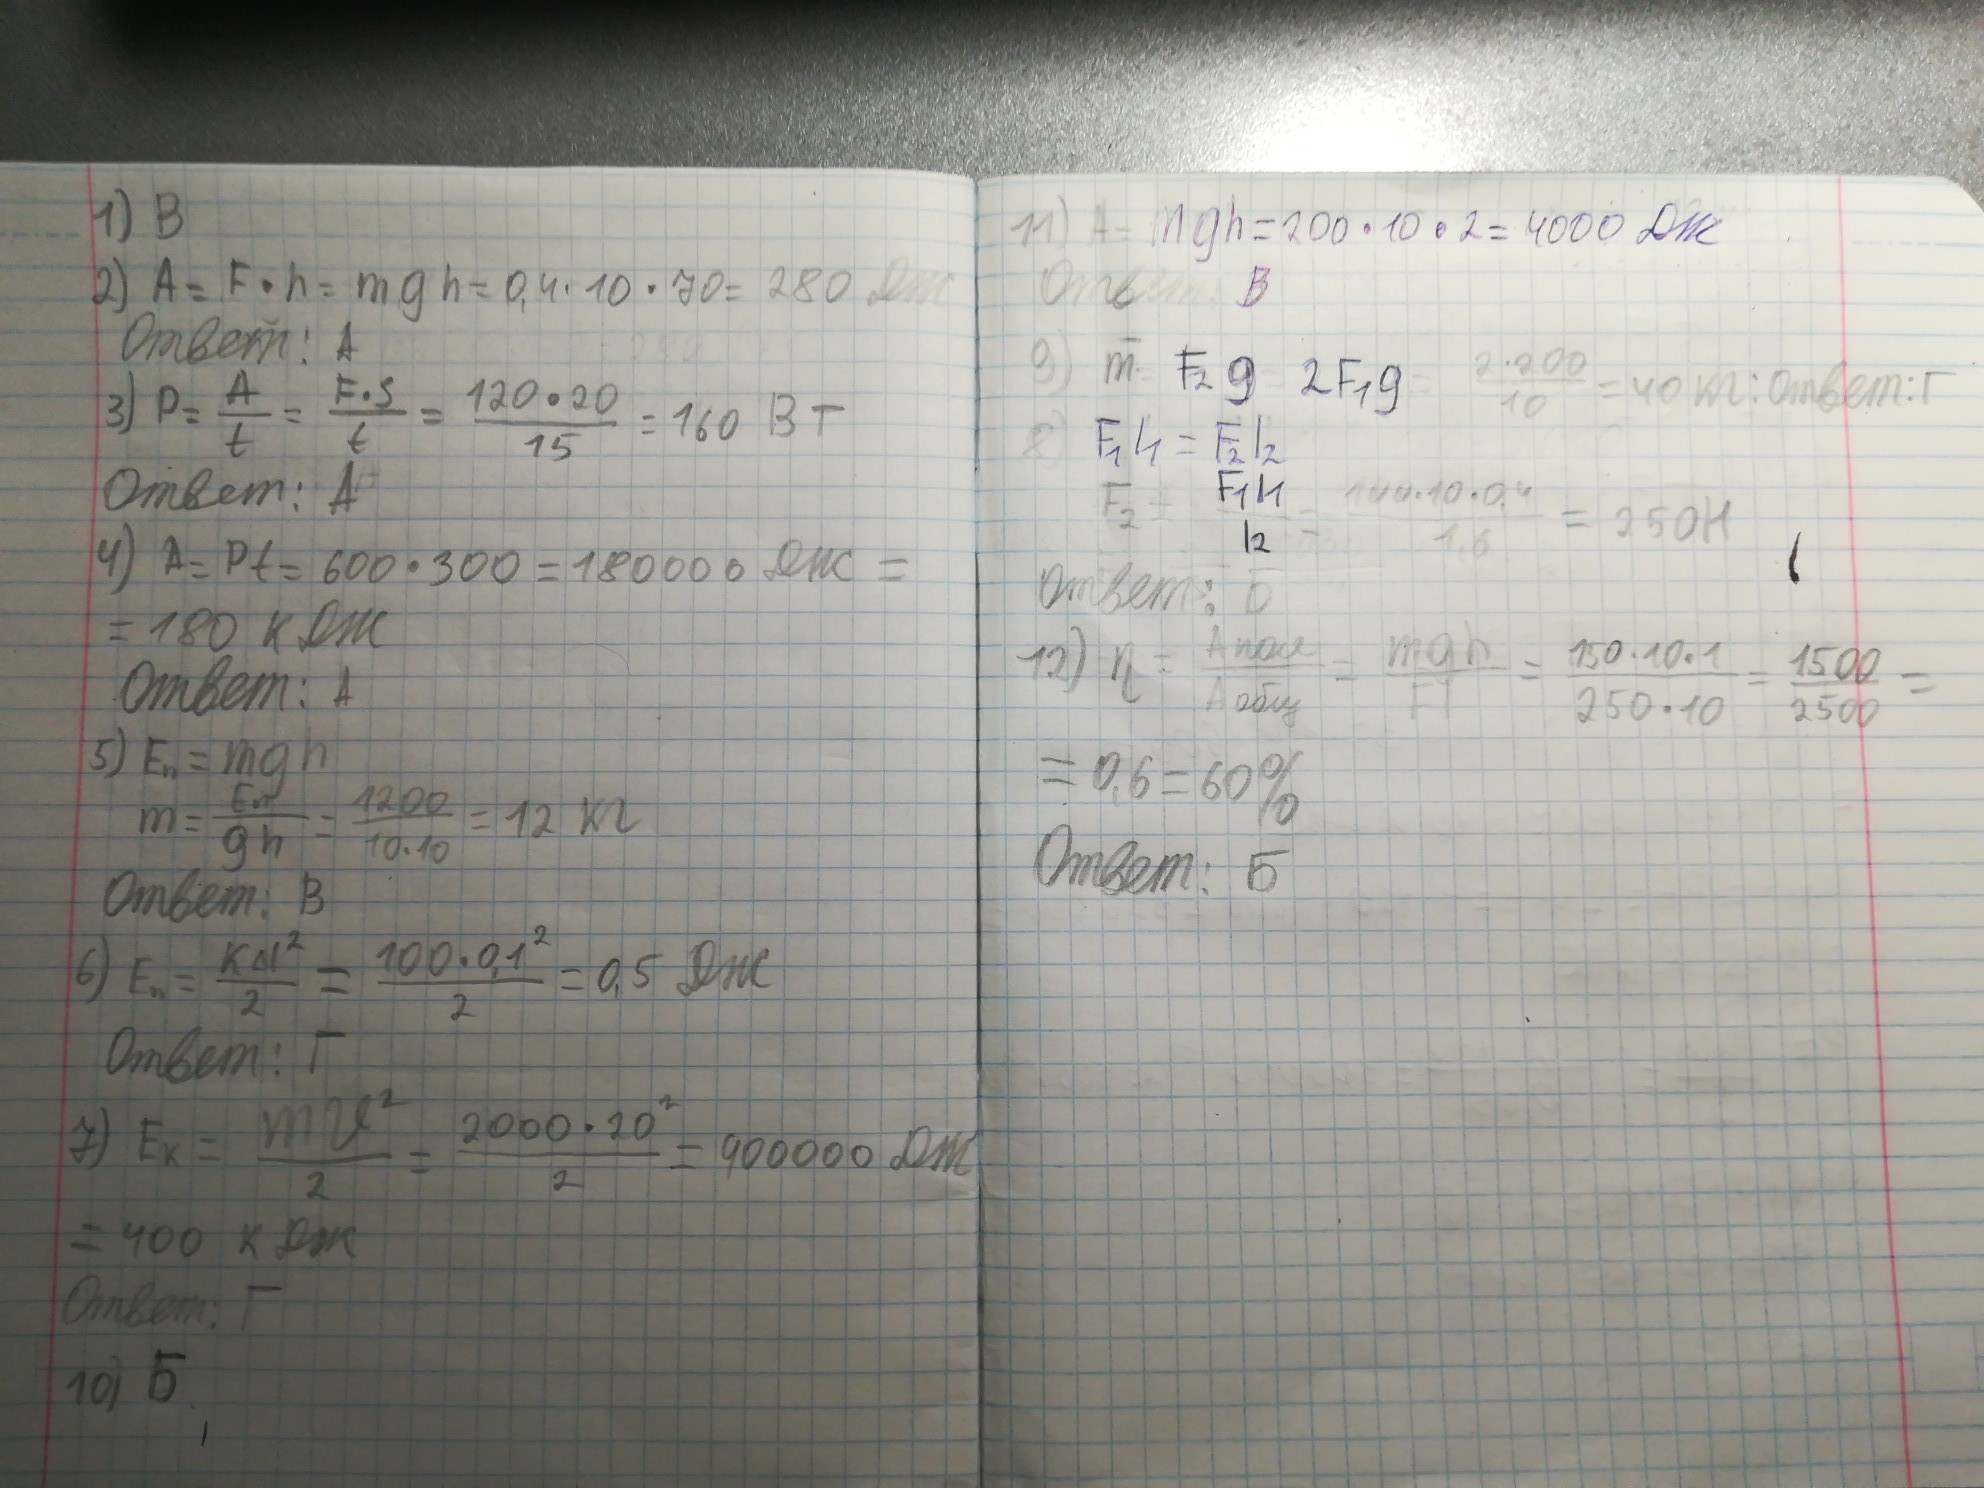 1) В
2) A = F·h = mgh = 0,4·10·70 = 280 Дж
Ответ: А
3) P = A/t = F·S/t = 120·20/15 = 160 Вт
Ответ: А
4) A = Pt = 600·300 = 180000 Дж =
= 180 кДж
Ответ: А
5) Eп = mgh
m = Eп/gh = 1200/10·10 = 12 кг
Ответ: В
6) Eп = кΔl²/2 = 100·0,1²/2 = 0,5 Дж
Ответ: Г
7) Eк = mv²/2 = 2000·20²/2 = 400000 Дж
= 400 кДж
Ответ: Г
10) Б
11) A = mgh = 200·10·2 = 4000 Дж
Ответ: В
9) m = F₂g 2F₁g = 2·200/10 = 40 кг: Ответ: Г
8) F₁l₁ = F₂l₂
F₂ = F₁l₁/l₂ = 100·10·0,4/1.6 = 250Н
Ответ: Б
12) η = Aпол/Aобщ = mgh/Fl = 150·10·1/250·10 = 1500/2500 =
= 0,6 = 60%
Ответ: Б